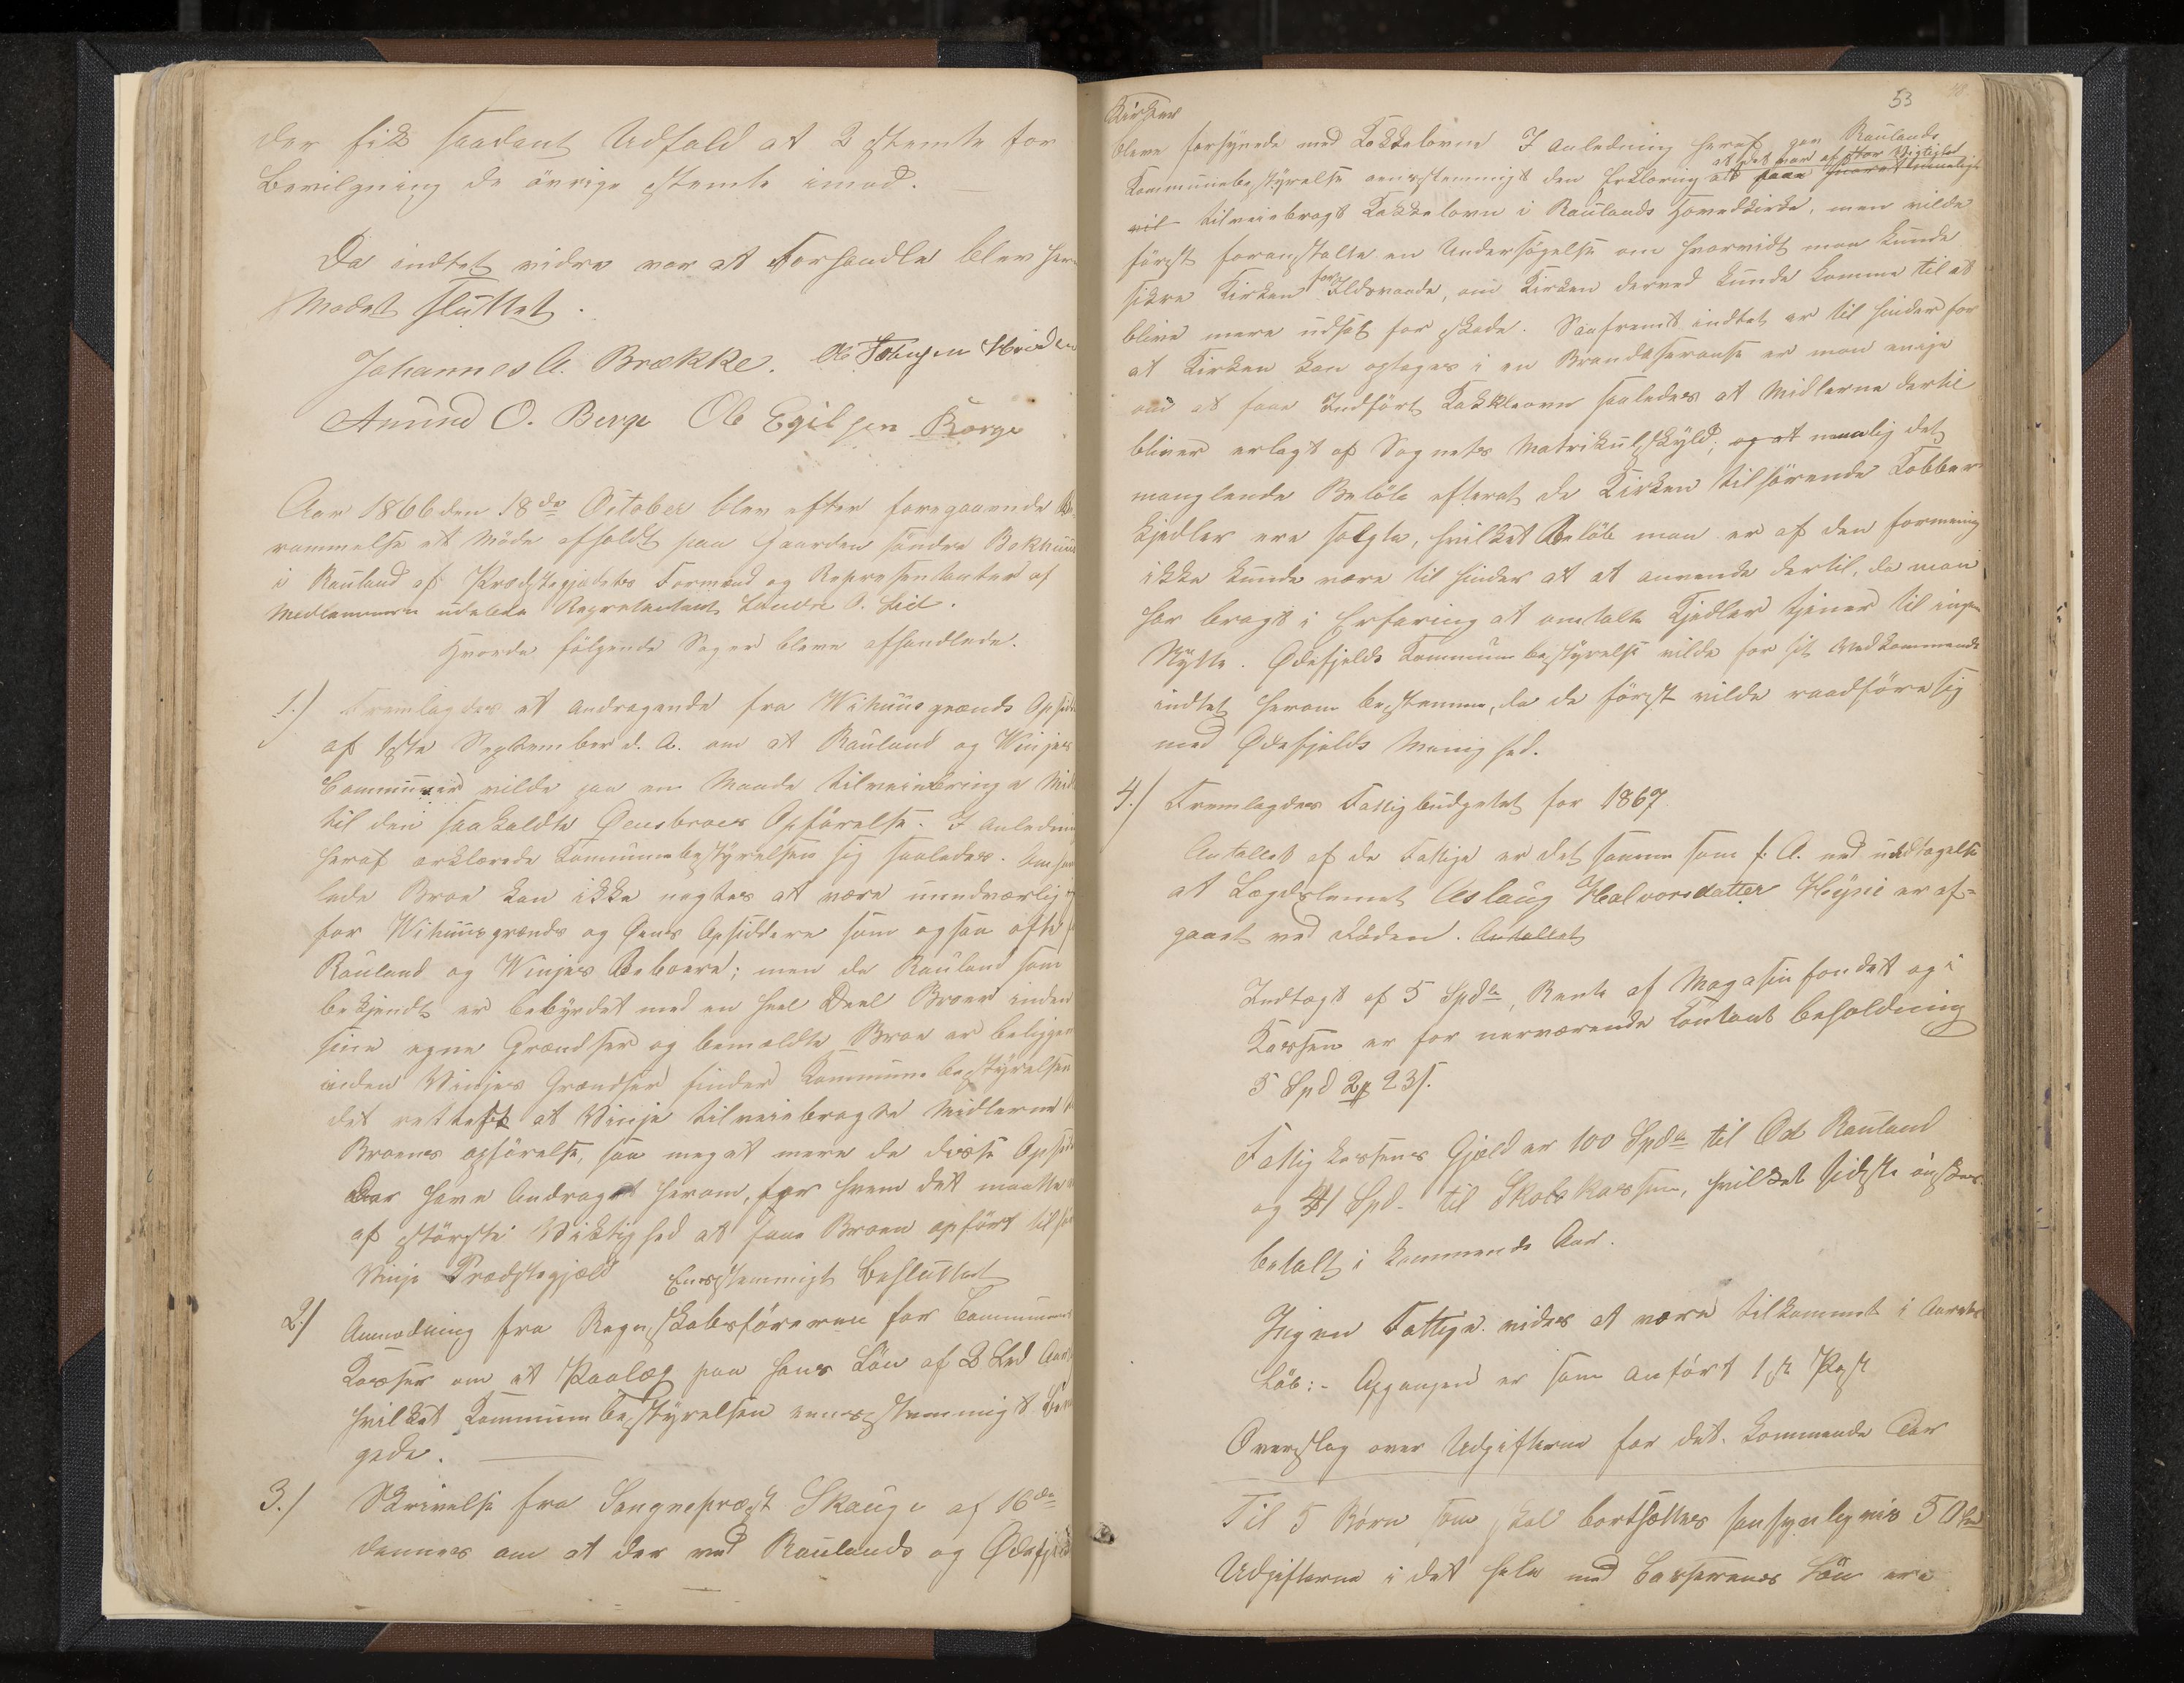 der fik saadant Udfald at 2 stemte for
Bevilgning de övrige stemte imod.
Da indtet videre var at Forhandle blev her
Mødet sluttet.
Johannes A. Brække. Ole
Amund O. Berge Ole Egilsen Børge
Aar 1866 den 18de October blev efter foregaaende
rammelse et Möde afholdt paa Gaarden söndre
i Rauland af Præstegjældets Formænd og Repræsentanter af
Medlemmerne udeblev Repræsentant O. Lid.
Hvorda fölgende Sager bleve afhandlede.
1.) Fremlagdes et Andragende fra Wihuusgrænds
af 1ste September d. A. om at Rauland og Winjes
Communer vilde paa en Maade tilveiebringe
til den saakaldte Øensbroes Opförelse. I Anledning
heraf erklærede Kommunebestyrelsen sig saaledes.
Broe kan ikke negtes at være uundværlig
for Wihuusgrænds og Øens Opsiddere som ogsaa ofte
Rauland og Winjes Beboere; men da Rauland som
bekjendt er bebyrdet med en heel Deel Broer inden
sine egne Grændser og bemældte Broe er
inden Vinjes Grændser finder Kommunebestyrelsen
det rettest at Vinje tilveiebragte Midlerne
Broenes opförelse, saa meget mere da disse
have Andraget herom, for hvem det maatte
af störste Viktighed at faae Broen opfört til
Vinje Prædstegjæld Eensstemmigt Besluttet
2.) Anmodning fra Regnskabsföreren for
Kasser om et Paalæg paa hans Lön af 2
hvilket Kommunebestyrelsen eensstemmigt
gede.
3.) Skrivelse fra Sognepræst Skauge af 16de
dennes om at der ved Raulands og
53
Kirker
bleve forsynede med Kakkelovne I Anledning heraf gav Raulands
Kommunebestyrelse eensstemmigt den Erklæring at det var af stor Vigtighed
tilveiebragt Kakkelovn i Raulands Hovedkirke, men vilde
först foranstalte en Undersögelse om hvorvidt man kunde
sikre Kirken for Ildsvaade, om Kirken derved kunde komme til at
blive mere udsat for skade. Saafremt indtet er til hinder for
at Kirken kan optages i en er man enige
om at faae Indfört Kakkleovn saaledes at Midlerne dertil
bliver erlagt af Sognets Matrikulskyld; og at det
manglende Belöb efterat de Kirken tilhörende Kobber
kjedler ere solgte, hvilket Belöb man er af den formening
ikke kunde være til hinder at at anvende dertil, da man
har bragt i Erfaring at omtalte Kjedler tjener til ingen
Nytte. Ødefjelds Kommunebestyrelse vilde for sit Vedkommende
indtet herom bestemme, da de först vilde raadföre sig
med Ødefjelds Menighed.
4.) Fremlagdes Fattigbudgetet for 1867.
Antallet af de Fattige er det samme som f. A. med undtagelse
at Lægdslemet Aslaug Halvorsdatter er af=
gaaet ved Döden. Antallet
Indtægt af 5 Spd, Rente af Magasinfondet og i
Kassen er for nerværende Contant beholdning
5 Spd 2 23 s.
Fattigkassens Gjæld er 100 Spd til Od Rauland
og 41 Spd. til Skolekassen, hvilket sidste önskes
betalt i kommende Aar.
Ingen Fattige vides at være tilkommet i Aarets
Löb:- Afgangen er som anfört 1ste Post
Overslag over Udgifterne for det kommende Aar
Til 5 Börn som skal bortsættes sansynligvis 50
Udgifterne i det hele med Lön